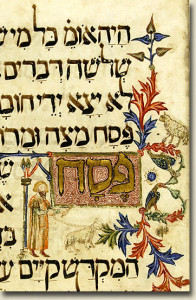 היה אומ כל מי
שלשה דברים
לא יצא ידי
פסח מצה ומרו
פסח
המקדש קיים